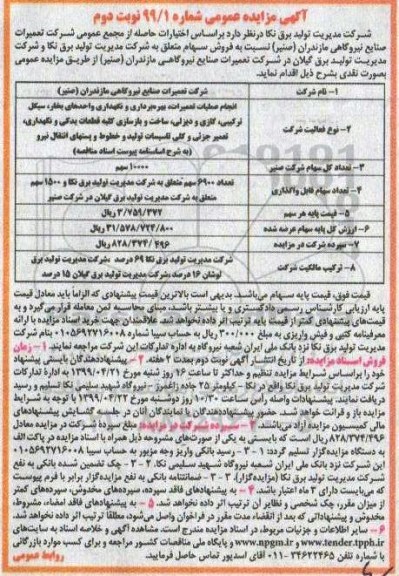 آگهی مزایده عمومی شماره ۹۹/۱ نوبت دوم
شرکت مدیریت تولید برق نکا درنظر دارد براساس اختیارات حاصله از مجمع عمومی شرکت تعمیرات
صنایع نیروگاهی مازندران (صنیر) نسبت به فروش سهام متعلق به شرکت مدیریت تولید برق نکا و شرکت
مدیریت تولید برق گیلان در شرکت تعمیرات صنایع نیروگاهی مازندران (صنیر) از طریق مزایده عمومی
بصورت نقدی بشرح ذیل اقدام نماید.
۱- نام شرکت
شرکت تعمیرات صنایع نیروگاهی مازندران (صنیر)
۲- نوع فعالیت شرکت
انجام عملیات تعمیرات، بهره‌برداری و نگهداری واحدهای بخار، سیکل
ترکیبی، گازی و دیزلی، ساخت و بازسازی کلیه قطعات یدکی و نگهداری،
تعمیر جزئی و کلی تاسیسات تولید و خطوط و پستهای انتقال نیرو
(به شرح اساسنامه پیوست اسناد مناقصه)
۳- تعداد کل سهام شرکت صنیر
۱۰۰۰۰ سهم
۴- تعداد سهام قابل واگذاری
تعداد ۶۹۰۰ سهم متعلق به شرکت مدیریت تولید برق نکا و ۱۵۰۰ سهم
متعلق به شرکت مدیریت تولید برق گیلان در شرکت صنیر
۵- قیمت پایه هر سهم
۳/۷۵۹/۳۷۲ ریال
۶- ارزش کل پایه سهام عرضه شده
۳۱/۵۷۸/۷۲۴/۸۰۰ ریال
۷- سپرده شرکت در مزایده
۸۲۸/۳۷۴/۴۹۶ ریال
۸- ترکیب مالکیت شرکت
شرکت مدیریت تولید برق نکا ۶۹ درصد، شرکت مدیریت تولید برق
لوشان ۱۶ درصد، شرکت مدیریت تولید برق گیلان ۱۵ درصد
قیمت فوق، قیمت پایه سهام می‌باشد. بدیهی است بالاترین قیمت پیشنهادی که الزاما باید معادل قیمت
پایه ارزیابی کارشناس رسمی دادگستری و یا بیشتر باشد، مبنای محاسبه ثمن معامله قرار می‌گیرد و به
قیمت‌های پیشنهادی کمتر از قیمت پایه ترتیب اثر داده نخواهد شد. علاقمندان جهت خرید اسناد مزایده با ارائه
معرفینامه کتبی و فیش واریزی به مبلغ ۳۰۰/۰۰۰ ریال به حساب سیبا شماره ۰۱۰۵۶۹۲۷۱۶۰۰۸ بنام شرکت
مدیریت تولید برق نکا نزد بانک ملی ایران شعبه نیروگاه به اداره تدارکات این شرکت مراجعه نمایند. ۱- زمان
فروش اسناد مزایده: از تاریخ انتشار آگهی نوبت دوم بمدت ۲ هفته. ۲- پیشنهاددهندگان بایستی پیشنهاد
خود را براساس شرایط مزایده تنظیم و حداکثر تا ساعت ۱۶ روز شنبه مورخ ۱۳۹۹/۰۴/۲۱ به اداره تدارکات
شرکت مدیریت تولید برق نکا واقع در نکا - کیلومتر ۲۵ جاده زاغمرز - نیروگاه شهید سلیمی نکا تسلیم و رسید
دریافت نمایند. پیشنهادات واصله رأس ساعت ۱۰/۳۰ روز دوشنبه مورخ ۱۳۹۹/۰۴/۲۳ با توجه به شرایط
مزایده باز و قرائت خواهد شد. حضور پیشنهاددهندگان یا نمایندگان آنان در جلسه گشایش پیشنهادهای
مالی کمیسیون مزایده آزاد می‌باشد. ۳- سپرده شرکت در مزایده: مبلغ سپرده شرکت در مزایده معادل
۸۲۸/۳۷۴/۴۹۶ ریال است که بایستی به یکی از صورت‌های مشروحه ذیل همراه با اسناد مزایده در پاکت الف
به دستگاه مزایده‌گزار تسلیم گردد: ۱-۳- رسید بانکی واریز وجه مزبور به حساب سیبا ۰۱۰۵۶۹۲۷۱۶۰۰۸
این شرکت نزد بانک ملی ایران شعبه نیروگاه شهید سلیمی نکا. ۲-۳- چک تضمین شده بانکی به نفع
شرکت مدیریت تولید برق نکا (مزایده‌گزار). ۳-۳- ضمانتنامه بانکی به نفع مزایده‌گزار برابر با فرم پیوست
که می‌بایست دارای ۳ ماه اعتبار باشد. ۴- به پیشنهادهای فاقد سپرده، سپرده‌های مخدوش، سپرده‌های کمتر
از میزان مقرر، چک شخصی و نظایر آن ترتیب اثر داده نخواهد شد. ۵- به پیشنهادهای فاقد امضاء، مشروط،
مخدوش و پیشنهاداتی که بعد از انقضاء مدت مقرر در فراخوان واصل می‌شود، مطلقا ترتیب اثر داده نخواهد شد.
۶- سایر اطلاعات و جزئیات مربوط، در اسناد مزایده مندرج است. مشاهده آگهی و خلاصه اسناد به سایت‌های
www.tender.tpph.ir و www.npgm.ir و پایگاه ملی مناقصات کشور مراجعه و برای کسب موارد بازرگانی
با شماره تلفن ۳۴۶۲۲۴۶۵-۰۱۱ آقای اسدپور تماس حاصل فرمایید.
روابط عمومی